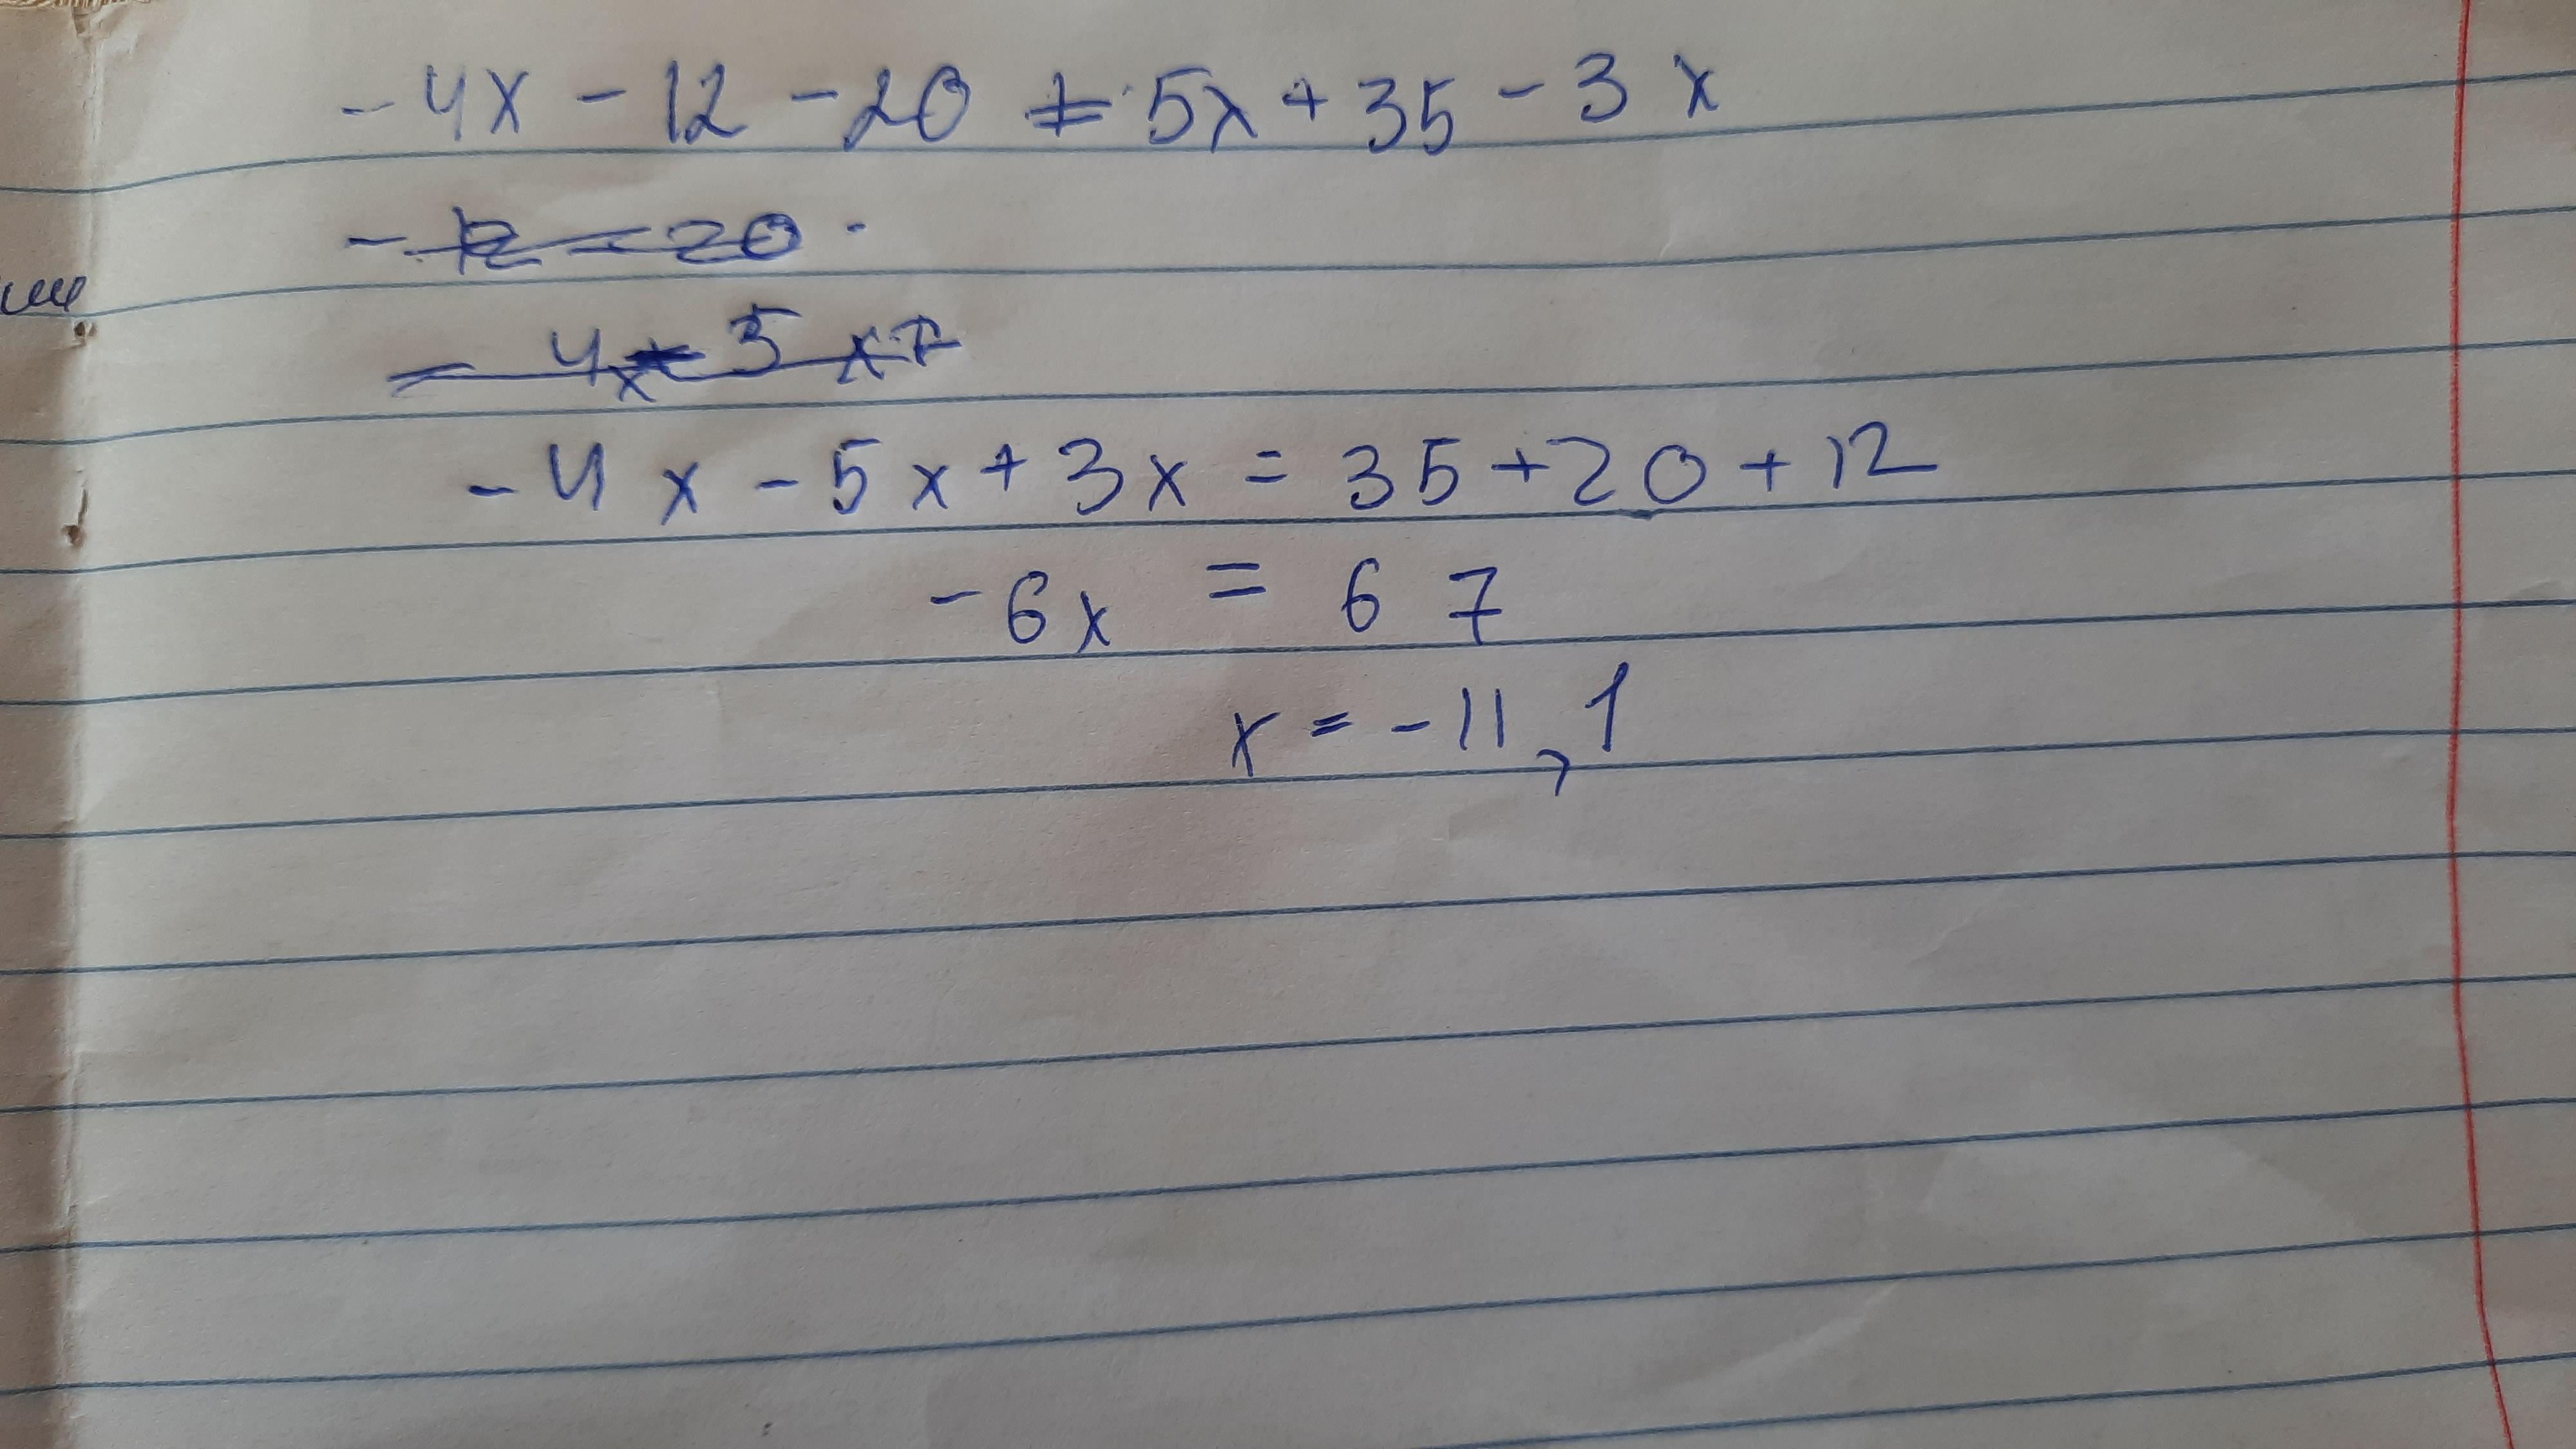 -4x - 12 - 20 = 5x + 35 - 3x
- 12 - 20 -
-4x - 5x +
-4x - 5x + 3x = 35 + 20 + 12
-6x = 67
x = -11,1